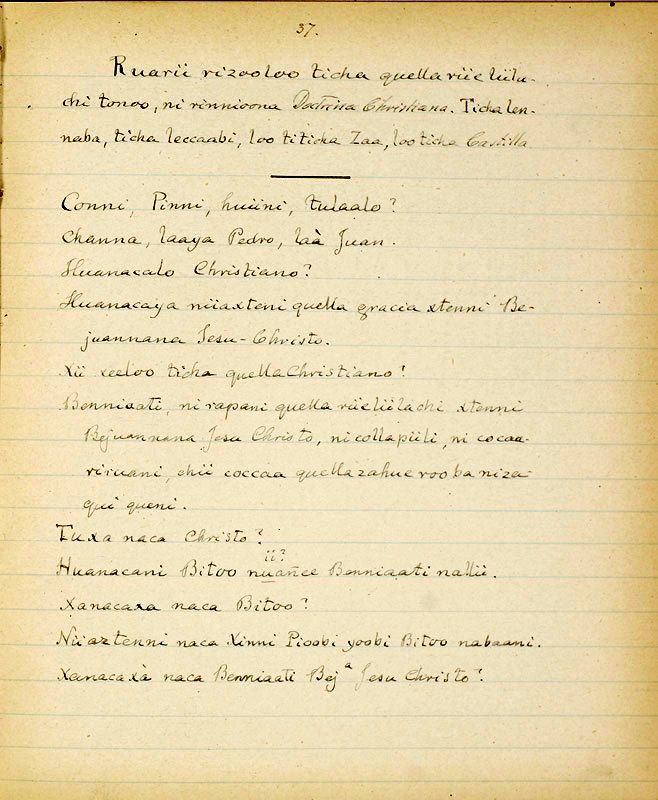 37.
Ruarii rizooloo ticha quella riieliila-
chi tonoo, ni rinnioona Doctrina Christiana. Ticha len-
naba, ticha leccaabi, loo titicha Zaa, loo ticha Castilla
Conni, Pinni, huiini, tulaalo?
Channa, laaya Pedro, laà Juan.
Huanacalo Christiano?
Huanacaya niiaxteni quella gracia xtenni Be-
juannana Jesu-Christo.
Xii xeeloo ticha quella Christiano?
Benniaati, ni rapani quella riieliilachi xtenni
Bejuannana Jesu Christo, ni collapiili, ni cocaa-
riruani, chii coccaa quellazahuerooba niza
qui queni.
Tuxa naca Christo?
ii?
Huanacani Bitoo nuañee Benniaati nallii.
Xanacaxa naca Bitoo?
Niiaztenni naca Xinni Pioobi yoobi Bitoo nabaani.
Xanacaxà naca Benniaati Bejª Jesu Christo?